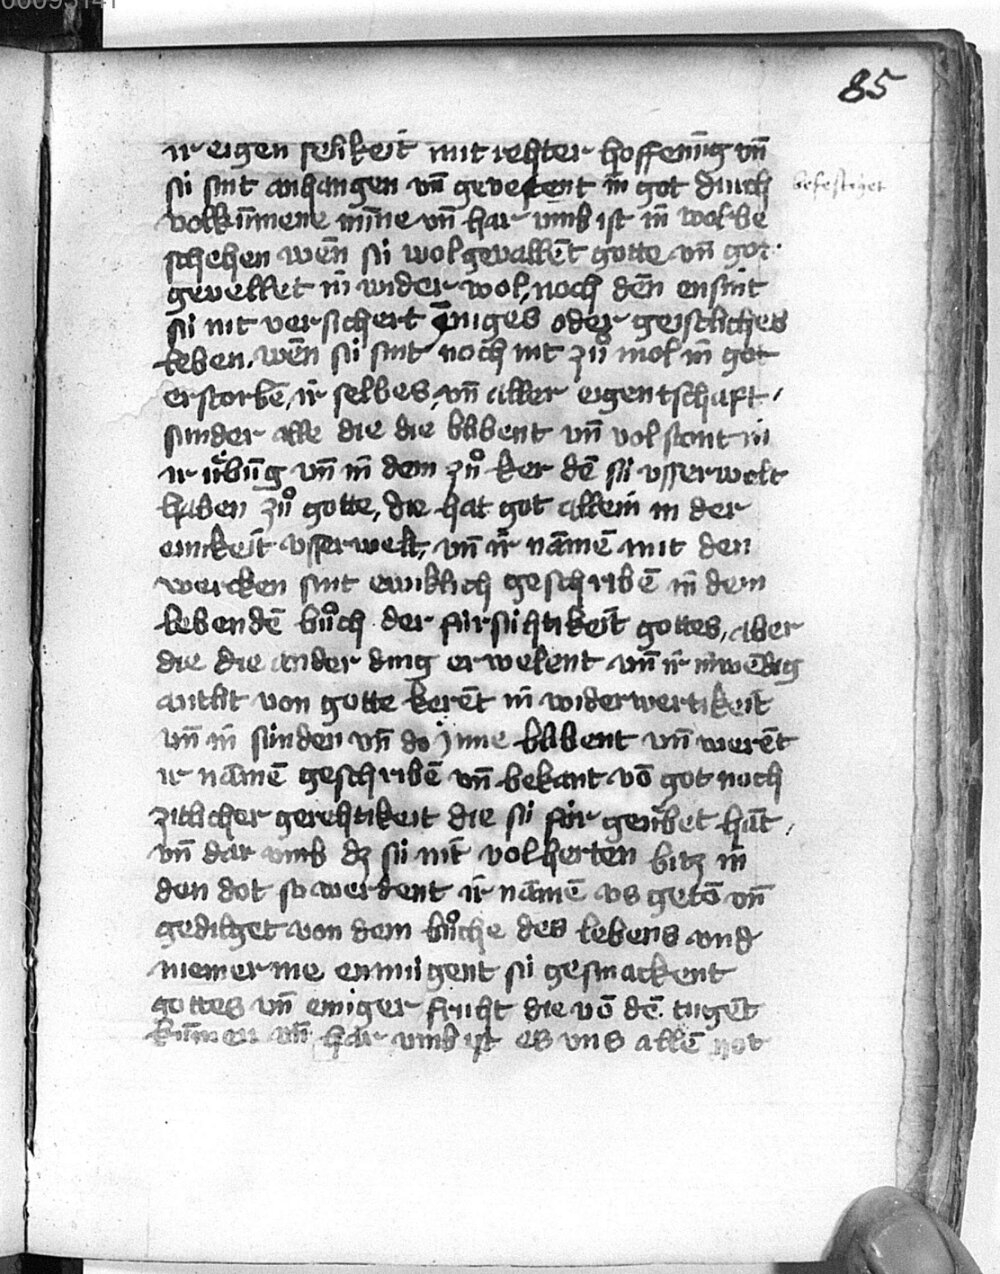 85
ir eigen selikeit mit rehter hoffenūg vn̄
si sint anhangen vn̄ gevestent in got durch
befestiget
volkūmene mīne vn̄ har vmb ist in wol be
schehen wēn si wol gevallēt gotte vn̄ got
gevellet in wider wol, noch dēn ensint
si nit versichert einiges oder geistliches
leben, wēn si sint noch nit zů mol in got
erstorbē, ir selbes, vn̄ aller eigentschaft,
sunder alle die die blibent vn̄ vol stont in
ir ůbūg vn̄ in dem zů ker dē si vsserwelt
haben zů gotte, die hat got allein in der
ewikeit vsserwelt, vn̄ ir nāmē mit den
wercken sint ewiklich geschribē in dem
lebendē bůch der fürsichtikeit gottes, aber
die die ander ding erwelent vn̄ ir inwēdig
antlit von gotte kerēt in widerwertikeit
vn̄ in sünden vn̄ do jnne blibent vn̄ werēt
ir nāmē geschribē vn̄ bekant vō got noch
zitlicher gerehtikeit die si für geübet hāt,
vn̄ dar vmb dz si nit vol herten bitz in
den dot so werdent ir nāmē vs getō vn̄
gedilget von dem bůche des lebens vnd
niemer me enmügent si gesmackent
gottes vn̄ einiger fruht die vō dē tugēt
kūmen vn̄ har vmb ist es vns allē not